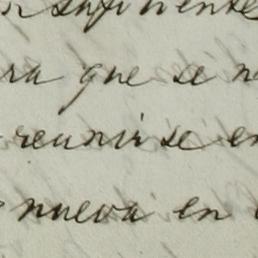 suficiente
ra que se n
reunirse en
nueva en